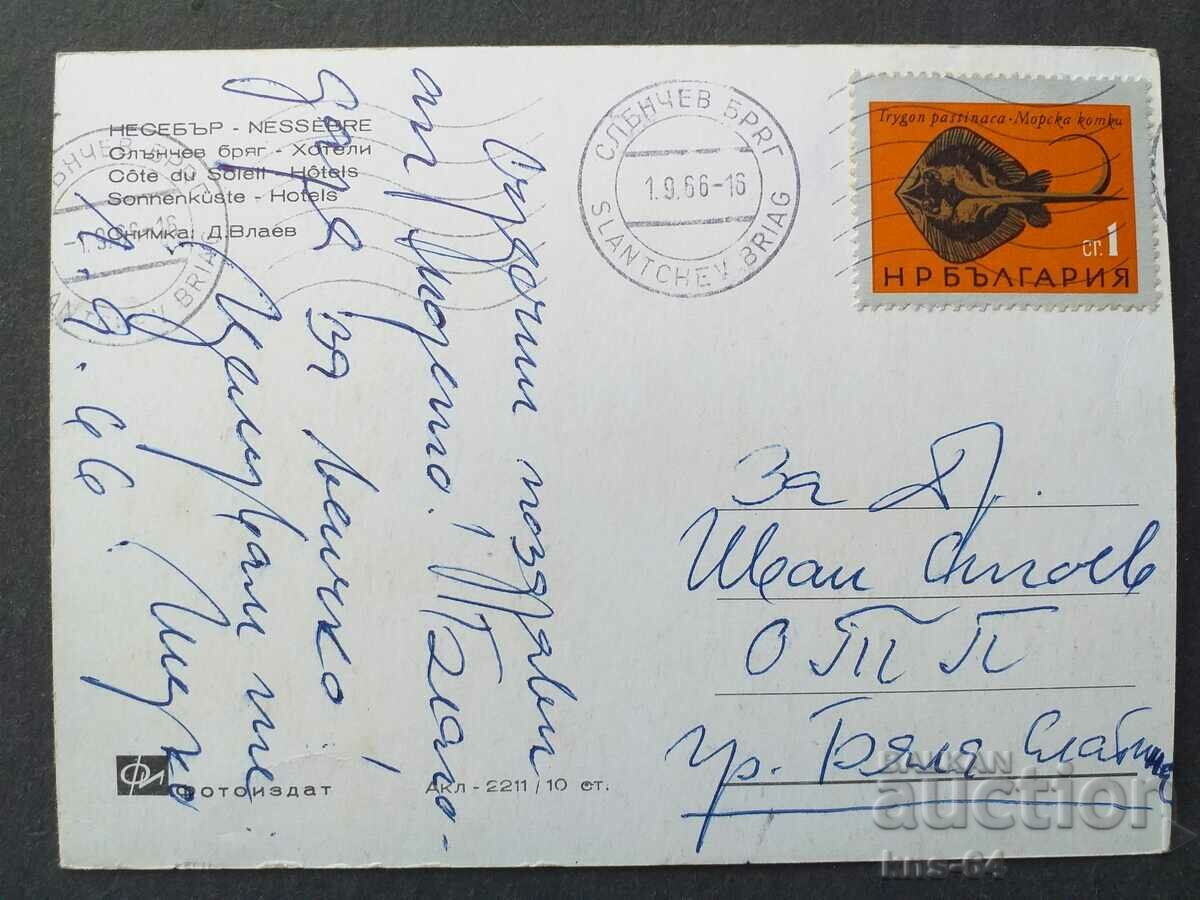 НЕСЕБЪР - NESSÈBRE
Слънчев бряг - Хотели
Côte du Soleil - Hôtels
Sonnenküste - Hotels
Снимка: Д.Влаев
СЛЪНЧЕВ БРЯГ
1.9.66-16
SLANTCHEV BRIAG
Trygon pastinaca · Морска котка
ст. 1
НРБЪЛГАРИЯ
Сърдечни поздрави
от морето! Благо-
даря за всичко!
Целувам те
1.9.66
За Д.
Иван
ОТП
гр. Бяла Слатина
фотоиздат
Акл - 2211 / 10 ст.
BALKAN
auction
kns-64